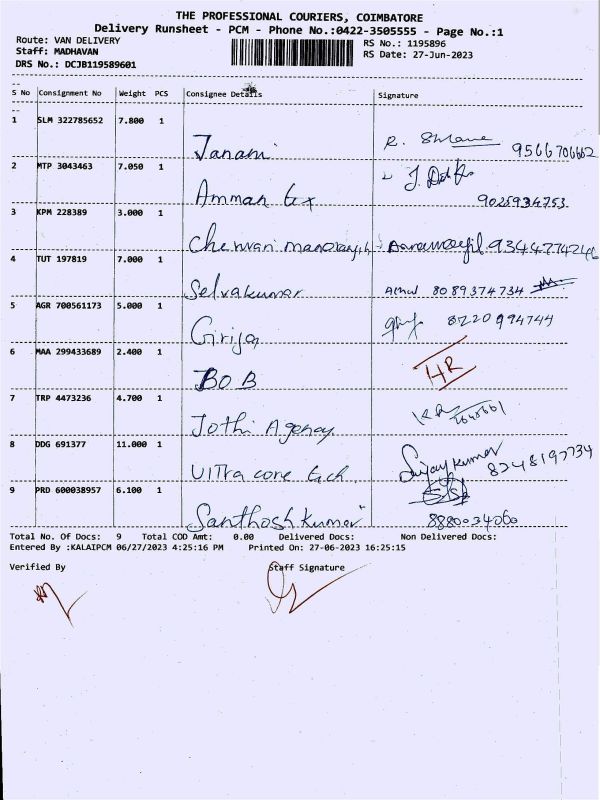 THE PROFESSIONAL COURIERS, COIMBATORE
Delivery Runsheet - PCM - Phone No.:0422-3505555 - Page No.:1
Route: VAN DELIVERY RS No.: 1195896
Staff: MADHAVAN RS Date: 27-Jun-2023
DRS No.: DCJB119589601
S No Consignment No Weight PCS Consignee Details Signature
1 SLM 322785652 7.800 1
Janani R. 9566706662
2 MTP 3043463 7.050 1
Amman tex 9025934753
3 KPM 228389 3.000 1
9344774246
4 TUT 197819 7.000 1
Selvakumar 8089374734
5 AGR 700561173 5.000 1
Girija 8220994744
6 MAA 299433689 2.400 1
BOB HR
7 TRP 4473236 4.700 1
Jothi Agency
8 DDG 691377 11.000 1
Ultra core tech 8248197734
9 PRD 600038957 6.100 1
Santhosh kumar 8880034060
Total No. Of Docs: 9 Total COD Amt: 0.00 Delivered Docs: Non Delivered Docs:
Entered By :KALAIPCM 06/27/2023 4:25:16 PM Printed On: 27-06-2023 16:25:15
Verified By Staff Signature